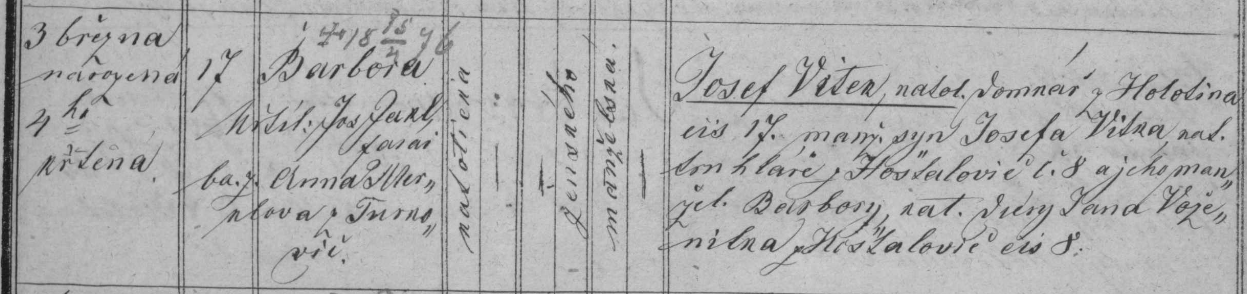 3 března
narozená
4 ho
křtěná.
17
18 15/4 76
Barbora
křtil: Jos. Jakl,
farář
ba. z. Anna Mer„
klova z Turko„
vič.
katolická
ženského
manželská.
Josef Vítek, katol. domkář z Holotína
čis 17. manž. syn Josefa Vítka, kat.
truhláře z Hošťalovic č. 8 a jeho man„
žel. Barbory, kat. dcery Jana Vože„
nílka z Hošťalovic čis 8.